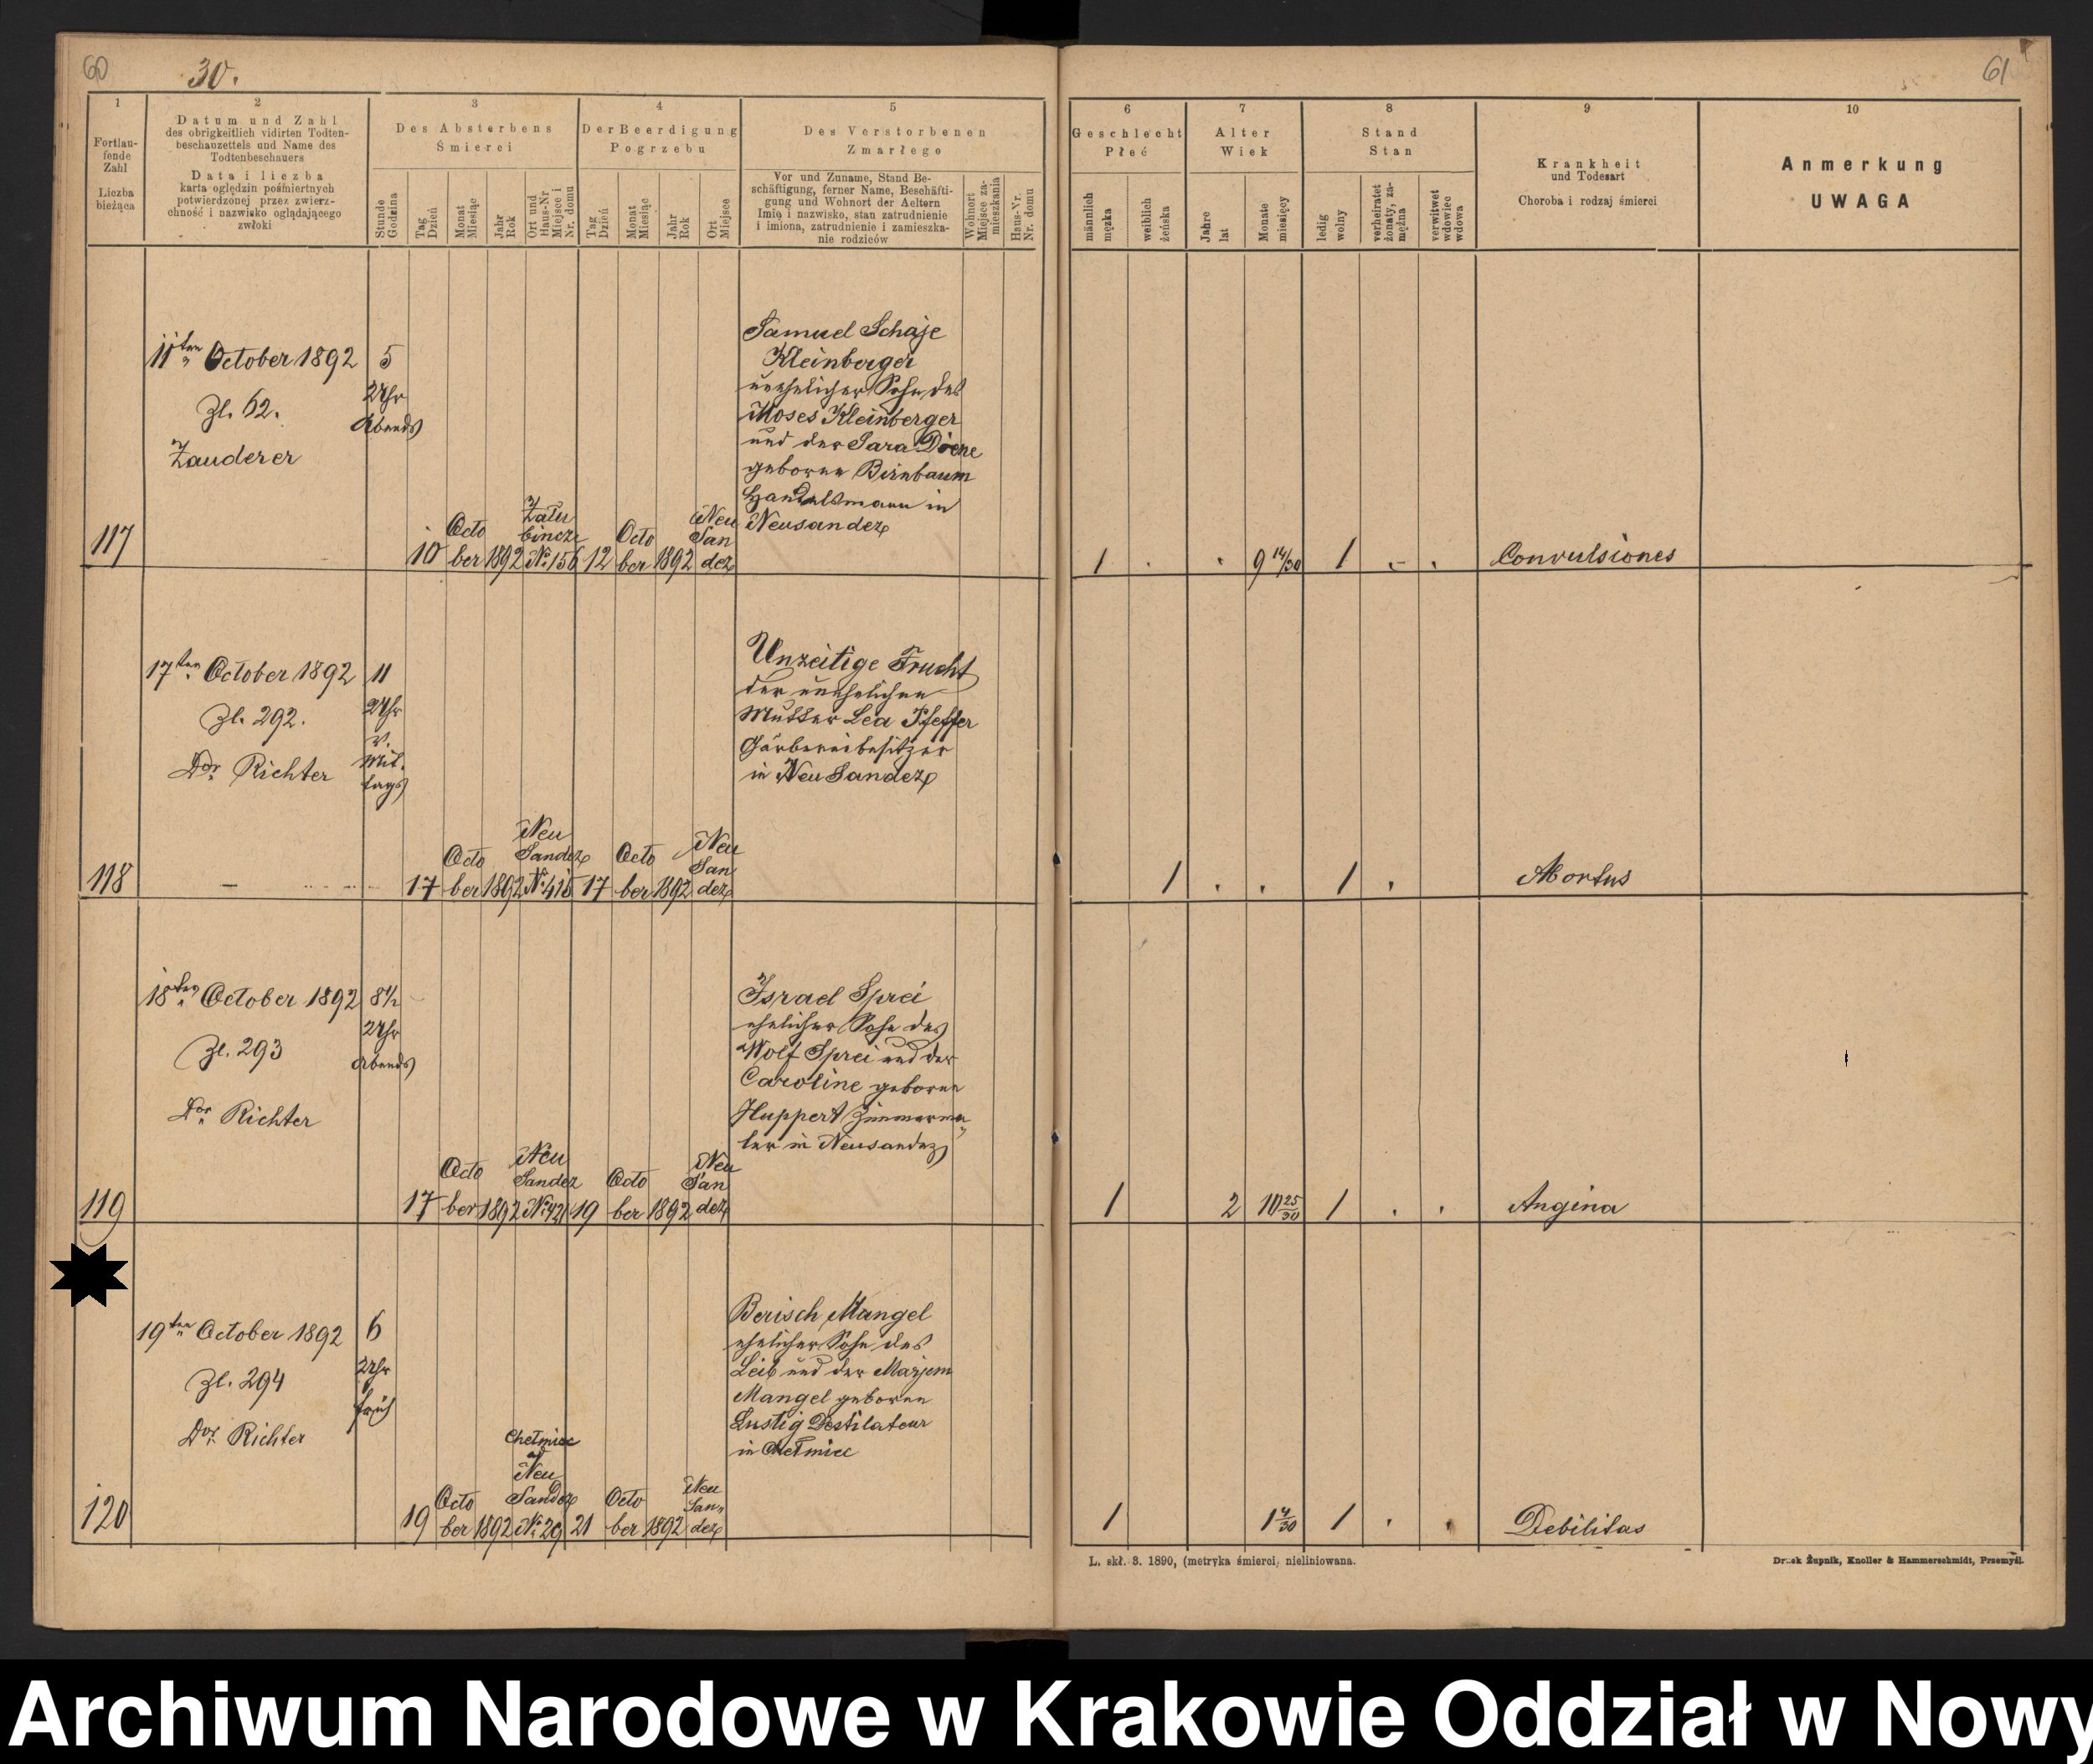 60
30.
61
1
Fortlau-
fende
Zahl
Liczba
bieżąca
2
Datum und Zahl
des obrigkeitlich vidirten Todten-
beschauzettels und Name des
Todtenbeschauers
Data i liczba
karta oględzin pośmiertnych
potwierdzonej przez zwierz-
chność i nazwisko oglądającego
zwłoki
3
Des Absterbens
Śmierci
Stunde
Godzina
Tag
Dzień
Monat
Miesiąc
Jahr
Rok
Ort und
Haus-Nr
Miejsce i
Nr. domu
4
Der Beerdigung
Pogrzebu
Tag
Dzień
Monat
Miesiąc
Jahr
Rok
Ort
Miejsce
5
Des Verstorbenen
Zmarłego
Vor und Zuname, Stand Be-
schäftigung, ferner Name, Beschäfti-
gung und Wohnort der Aeltern
Imię i nazwisko, stan zatrudnienie
i imiona, zatrudnienie i zamieszka-
nie rodziców
Wohnort
Miejsce za-
mieszkania
Haus-Nr.
Nr. domu
6
Geschlecht
Płeć
männlich
męzka
weiblich
żeńska
7
Alter
Wiek
Jahre
lat
Monate
miesięcy
8
Stand
Stan
ledig
wolny
verheiratet
żonaty, za-
mężna
verwitwet
wdowiec
wdowa
9
Krankheit
und Todesart
Choroba i rodzaj śmierci
10
Anmerkung
UWAGA
117
11ten October 1892
Zl. 62.
Zauderer
5
Uhr
Abends
10
Octo
ber
1892
Zału
bincze
No. 156
12
Octo
ber
1892
Neu
San
dez
Samuel Schaje
Kleinberger
unehelicher Sohn des
Moses Kleinberger
und der Sara
geboren Birnbaum
Handelsmann in
Neusandez
1
9 14/30
1
Convulsiones
118
17ten October 1892
Zl. 292.
Dor Richter
11
Uhr
v.
Mit.
tags
17
Octo
ber
1892
Neu
Sandez
17
Octo
ber
1892
Neu
San
dez
Unzeitige Frucht
der unehelichen
Mutter Lea Pfeffer
Gärbereibesitzer
in Neu Sandez
1
1
Abortus
119
18ten October 1892
Zl. 293
Dor Richter
8 1/2
Uhr
Abends
17
Octo
ber
1892
Neu
Sandez
19
Octo
ber
1892
Neu
San
dez
Israel Sprei
ehelicher Sohn des
Wolf Sprei und der
Caroline geboren
Huppert Zimmerma
ler in Neusandez
1
2
10 25/30
1
Angina
120
19ten October 1892
Zl. 294
Dor Richter
6
Uhr
früh
19
Octo
ber
1892
Chełmiec
Neu
Sandez
No. 29
21
Octo
ber
1892
Neu
San„
dez
Berisch Mangel
ehelicher Sohn des
Leib und der Marjem
Mangel geboren
Lustig Destilateur
in Chełmiec
1
1 4/30
1
Debilitas
L. skł. 3. 1890, (metryka śmierci, nieliniowana.
Druk Żupnik, Knoller & Hammerschmidt, Przemyśl.
Archiwum Narodowe w Krakowie Oddział w Nowy